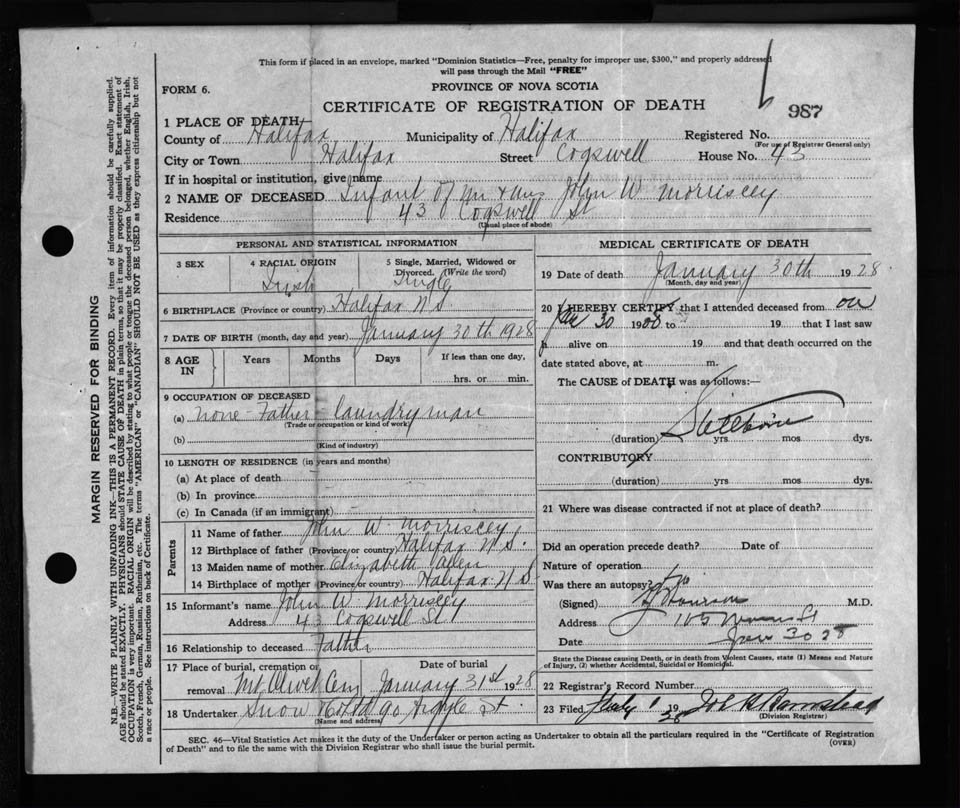 This form if placed in an envelope, marked "Dominion Statistics—Free, penalty for improper use, $300," and properly addressed
will pass through the Mail "FREE"
FORM 6.
PROVINCE OF NOVA SCOTIA
CERTIFICATE OF REGISTRATION OF DEATH
987
1 PLACE OF DEATH
County of Halifax Municipality of Halifax Registered No.
(For use of Registrar General only)
City or Town Halifax Street Cogswell House No. 43
If in hospital or institution, give name
2 NAME OF DECEASED Infant of Mr & Mrs John W Morriscey
Residence 43 Cogswell St
(Usual place of abode)
PERSONAL AND STATISTICAL INFORMATION
3 SEX 4 RACIAL ORIGIN 5 Single, Married, Widowed or
Divorced. (Write the word)
Irish Single
6 BIRTHPLACE (Province or country) Halifax N S.
7 DATE OF BIRTH (month, day and year) January 30th 1928
8 AGE IN Years Months Days If less than one day,
hrs. or min.
9 OCCUPATION OF DECEASED
(a) none - Father - laundry man
(Trade or occupation or kind of work)
(b)
(Kind of industry)
10 LENGTH OF RESIDENCE (in years and months)
(a) At place of death
(b) In province
(c) In Canada (if an immigrant)
Parents
11 Name of father John W. Morriscey
12 Birthplace of father (Province or country) Halifax N S.
13 Maiden name of mother Elizabeth Allen
14 Birthplace of mother (Province or country) Halifax N S
15 Informant's name John W Morriscey
Address 43 Cogswell St
16 Relationship to deceased Father
17 Place of burial, cremation or Date of burial
removal Mt Olivet Cem January 31st 1928
18 Undertaker Snow & Co Ltd 90 Argyle st.
(Name and address)
MEDICAL CERTIFICATE OF DEATH
19 Date of death January 30th 1928
(Month, day and year)
20 I HEREBY CERTIFY that I attended deceased from on
Jan 30 19 to 19 that I last saw
h alive on 19 and that death occurred on the
date stated above, at m.
The CAUSE of DEATH was as follows:—
Stillborn
(duration) yrs mos dys.
CONTRIBUTORY
(duration) yrs mos dys.
21 Where was disease contracted if not at place of death?
Did an operation precede death? Date of
Nature of operation
Was there an autopsy? No
(Signed) M.D.
Address St
Date Jan 30 28
State the Disease causing Death, or in death from Violent Causes, state (1) Means and Nature
of Injury, (2) whether Accidental, Suicidal or Homicidal.
22 Registrar's Record Number
23 Filed 1 19 28
(Division Registrar)
SEC. 46—Vital Statistics Act makes it the duty of the Undertaker or person acting as Undertaker to obtain all the particulars required in the "Certificate of Registration
of Death" and to file the same with the Division Registrar who shall issue the burial permit.
(OVER)
MARGIN RESERVED FOR BINDING
N.B.—WRITE PLAINLY WITH UNFADING INK—THIS IS A PERMANENT RECORD. Every item of information should be carefully supplied.
AGE should be stated EXACTLY. PHYSICIANS should STATE CAUSE OF DEATH in plain terms, so that it may be properly classified. Exact statement of
OCCUPATION is very important. RACIAL ORIGIN will be described by stating to what people or tongue the deceased person belonged, whether English, Irish,
Scotch, French, German, Russian, Ruthenian, etc. The terms "AMERICAN" or "CANADIAN" SHOULD NOT BE USED as they express citizenship but not
a race or people. See instructions on back of Certificate.